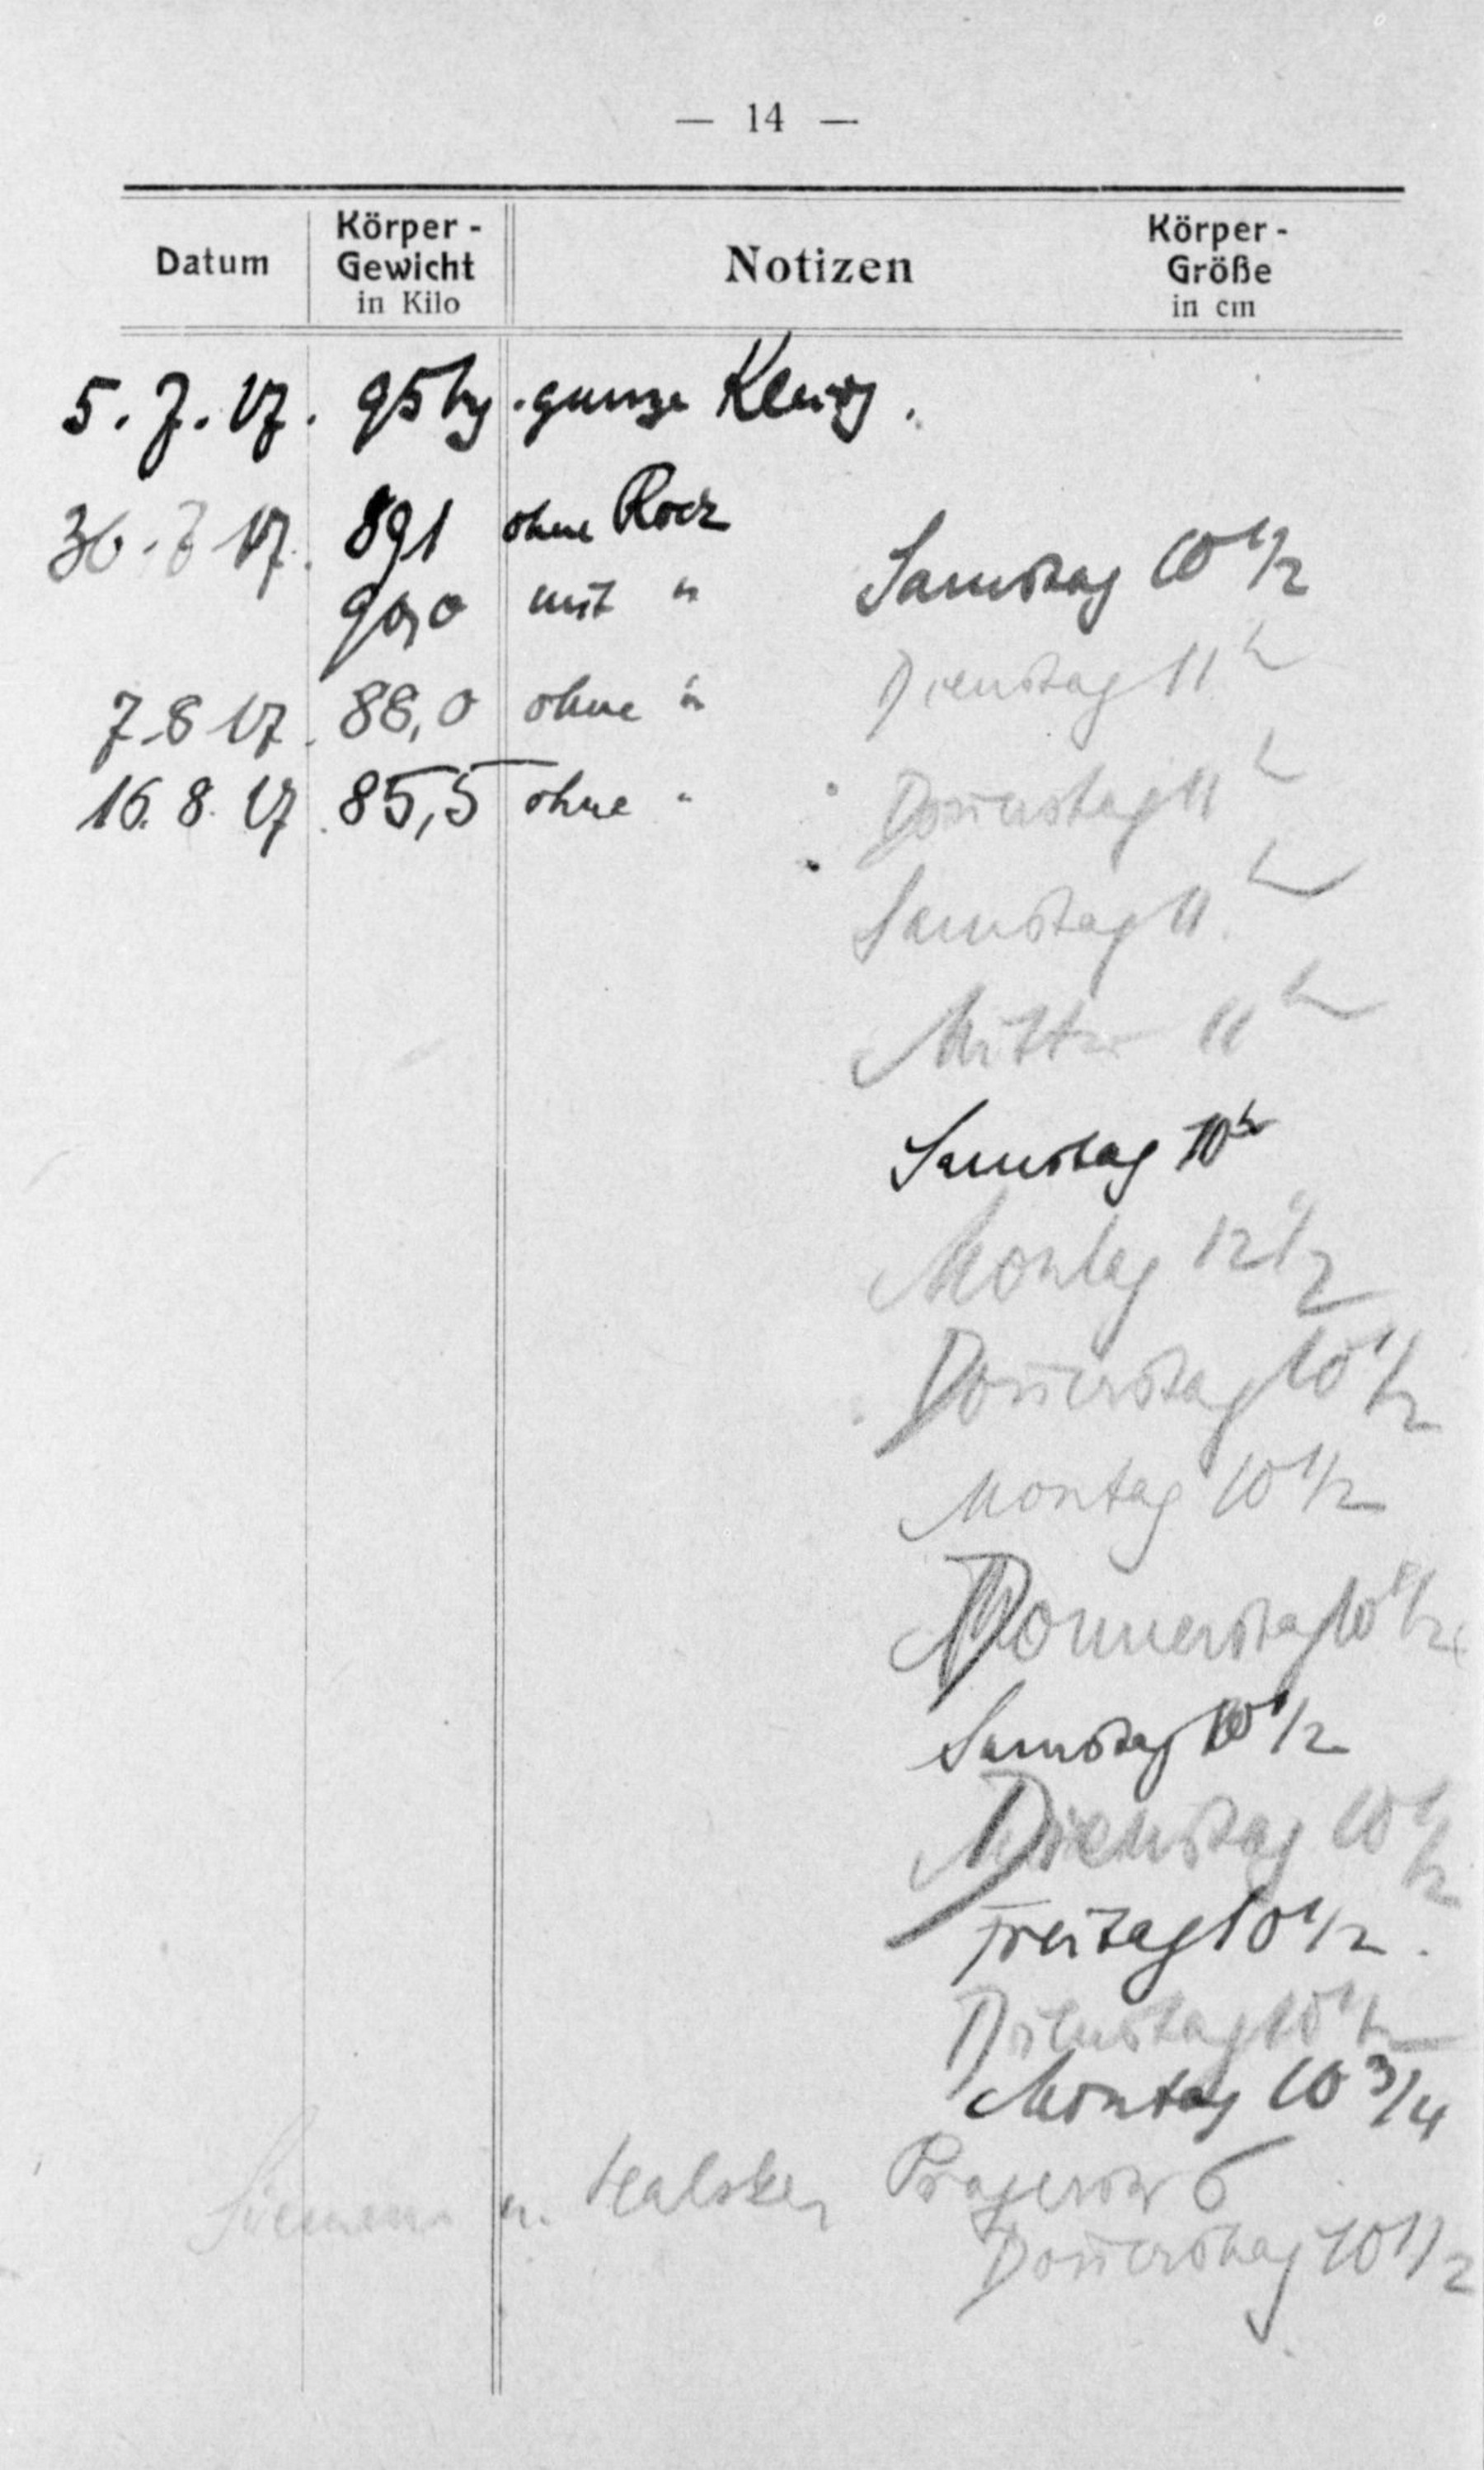 — 14 —
Datum Körper-Gewicht in Kilo Notizen Körper-Größe in cm
5. 7. 17. 95 kg. ganze Kleidg.
30. 7 17. 89,1 ohne Rock
90,0 mit "
Samstag 10 1/2
Dienstag 11 h
7. 8 17. 88,0 ohne "
16. 8. 17. 85,5 ohne "
Donnerstag 11 h
Samstag 11. h
Mittw 11 h
Samstag 10 h
Montag 12 1/2
Donnerstag 10 1/2
Montag 10 1/2
Donnerstag 10 1/2
Samstag 10 1/2
Dienstag 10 1/2
Freitag 10 1/2.
Dienstag 10 1/2
Montag 10 3/4
Siemens u. Halske, Pragerstr 6
Donnerstag 10 1/2